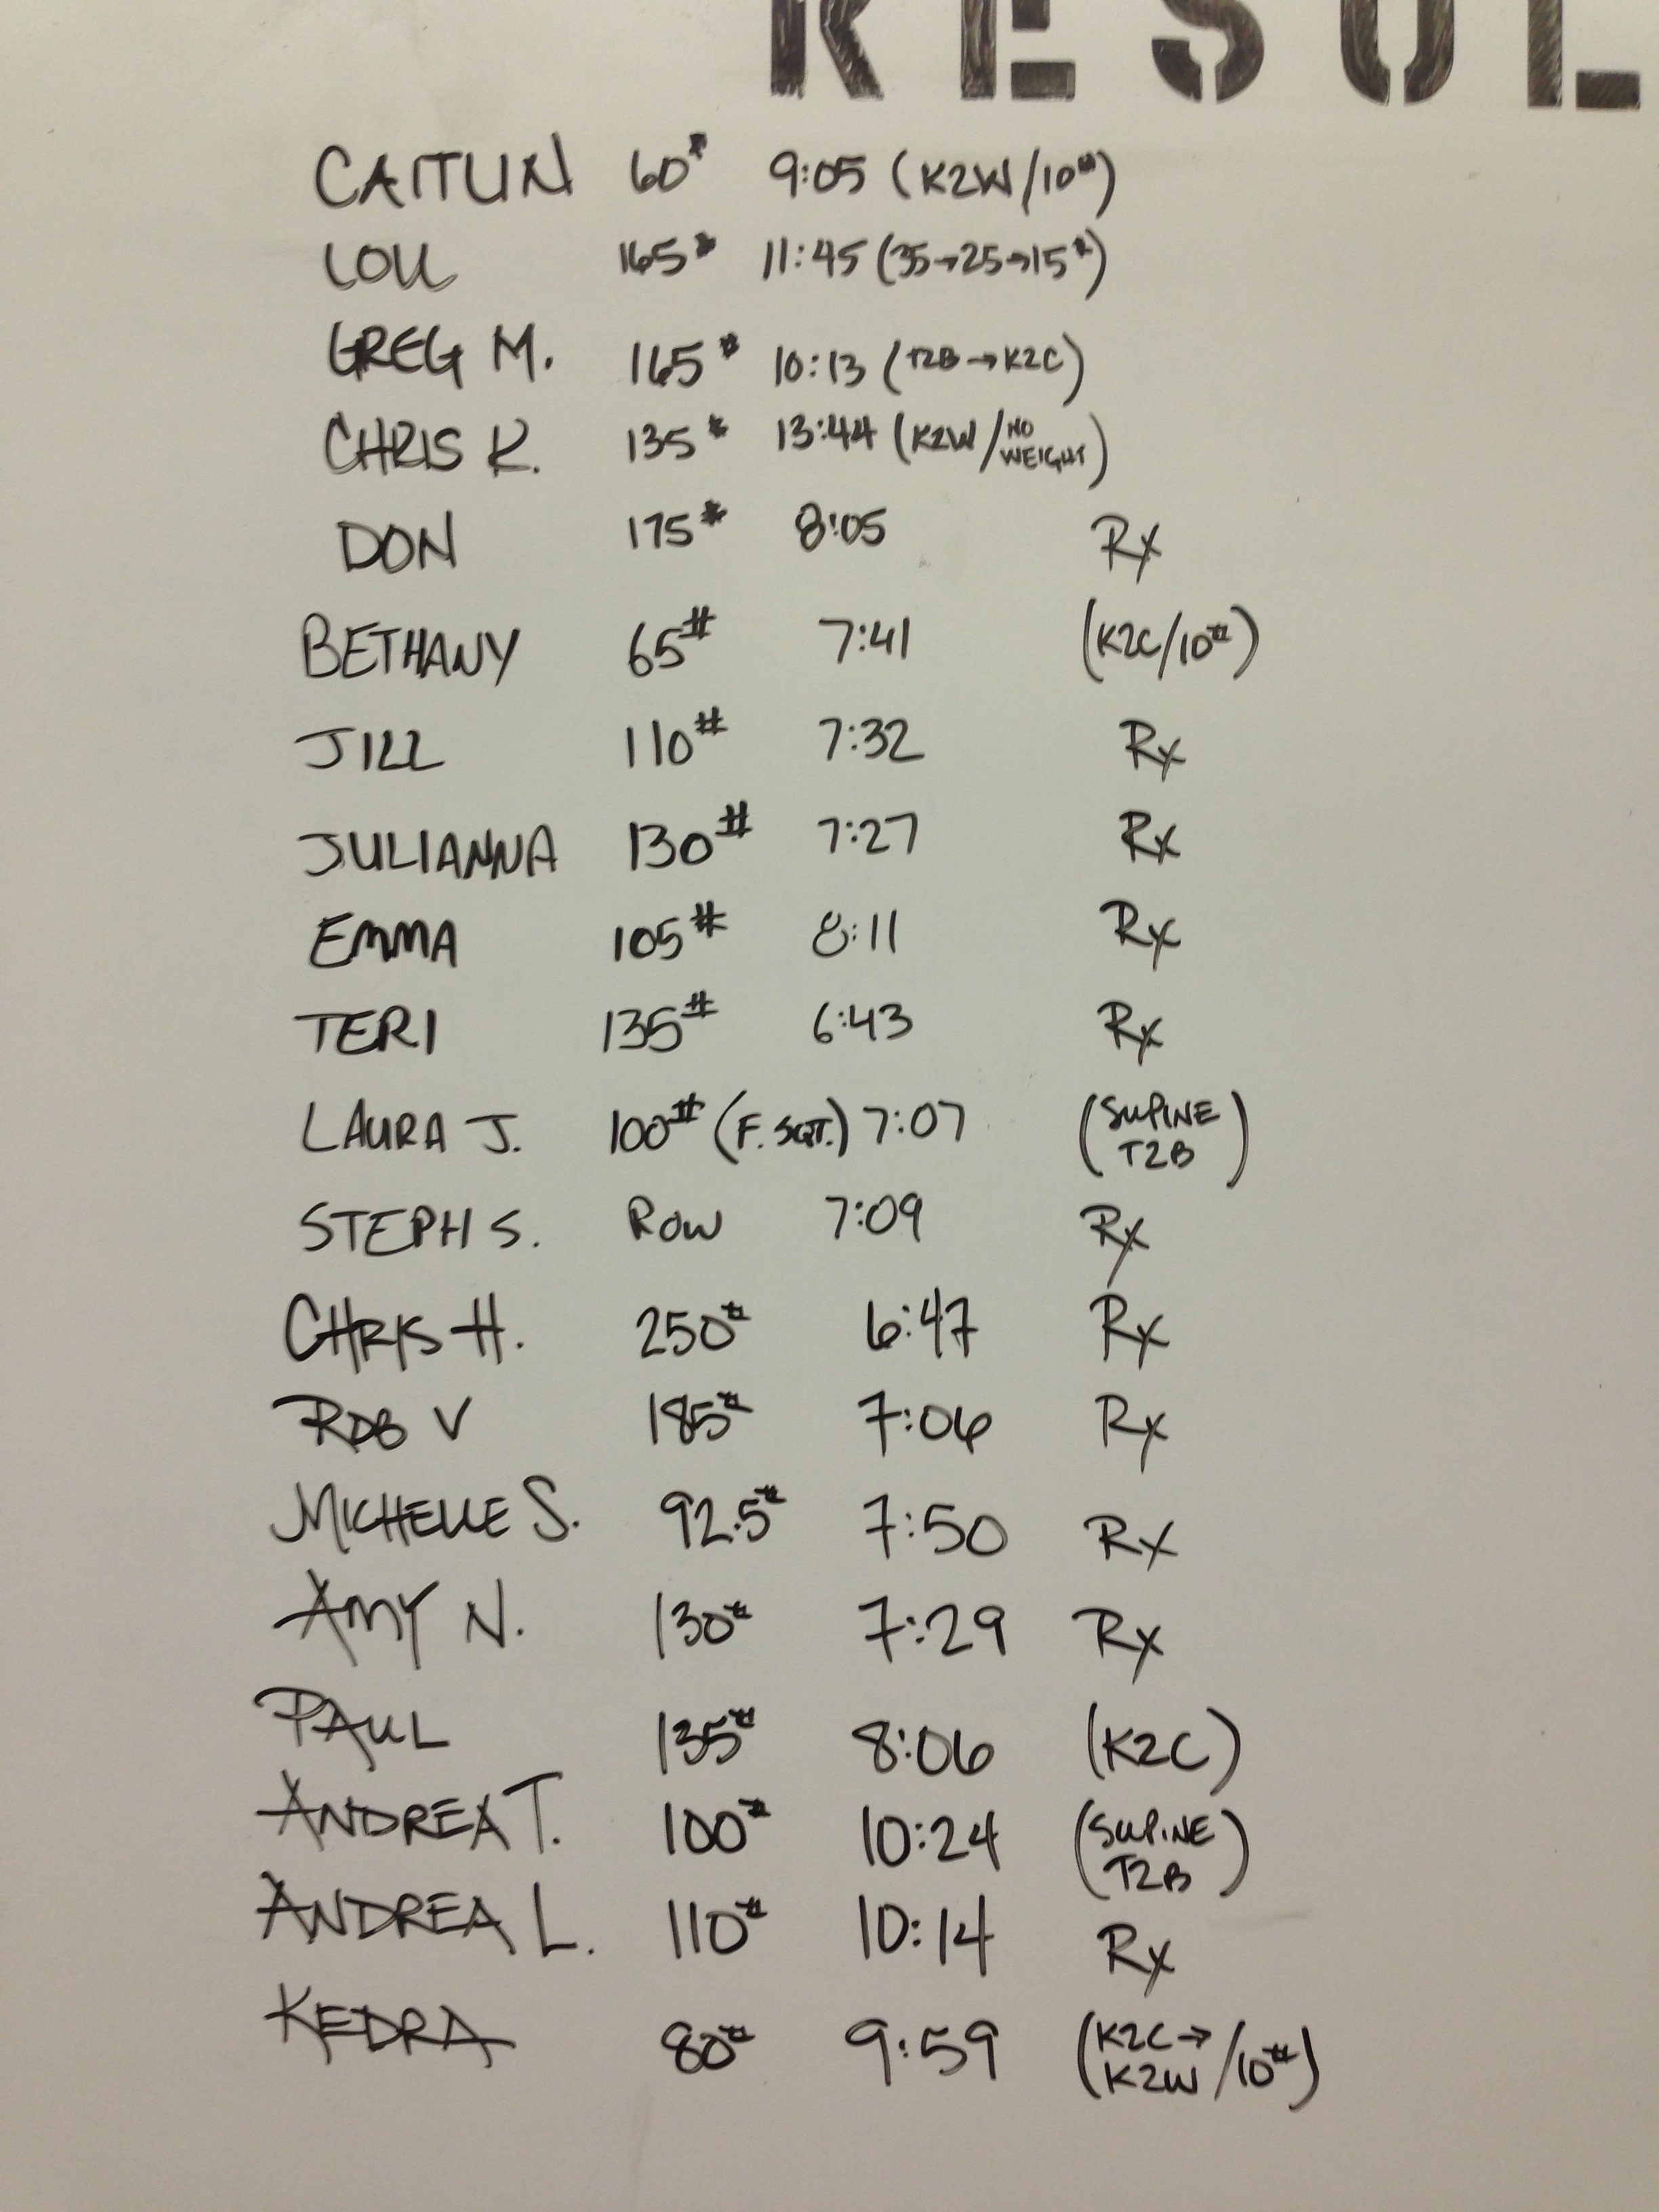 RESUL
CAITLIN 60# 9:05 (K2W/10#)
LOU 165# 11:45 (35→25→15#)
GREG M. 165# 10:13 (T2B→K2C)
CHRIS K. 135# 13:44 (K2W/NO WEIGHT)
DON 175# 8:05 Rx
BETHANY 65# 7:41 (K2C/10#)
JILL 110# 7:32 Rx
JULIANNA 130# 7:27 Rx
EMMA 105# 8:11 Rx
TERI 135# 6:43 Rx
LAURA J. 100# (F. SQT.) 7:07 (SUPINE T2B)
STEPH S. ROW 7:09 Rx
CHRIS H. 250# 6:47 Rx
ROB V 185# 7:06 Rx
MICHELLE S. 92.5# 7:50 Rx
AMY N. 130# 7:29 Rx
PAUL 135# 8:06 (K2C)
ANDREA T. 100# 10:24 (SUPINE T2B)
ANDREA L. 110# 10:14 Rx
KEDRA 80# 9:59 (K2C→K2W/10#)